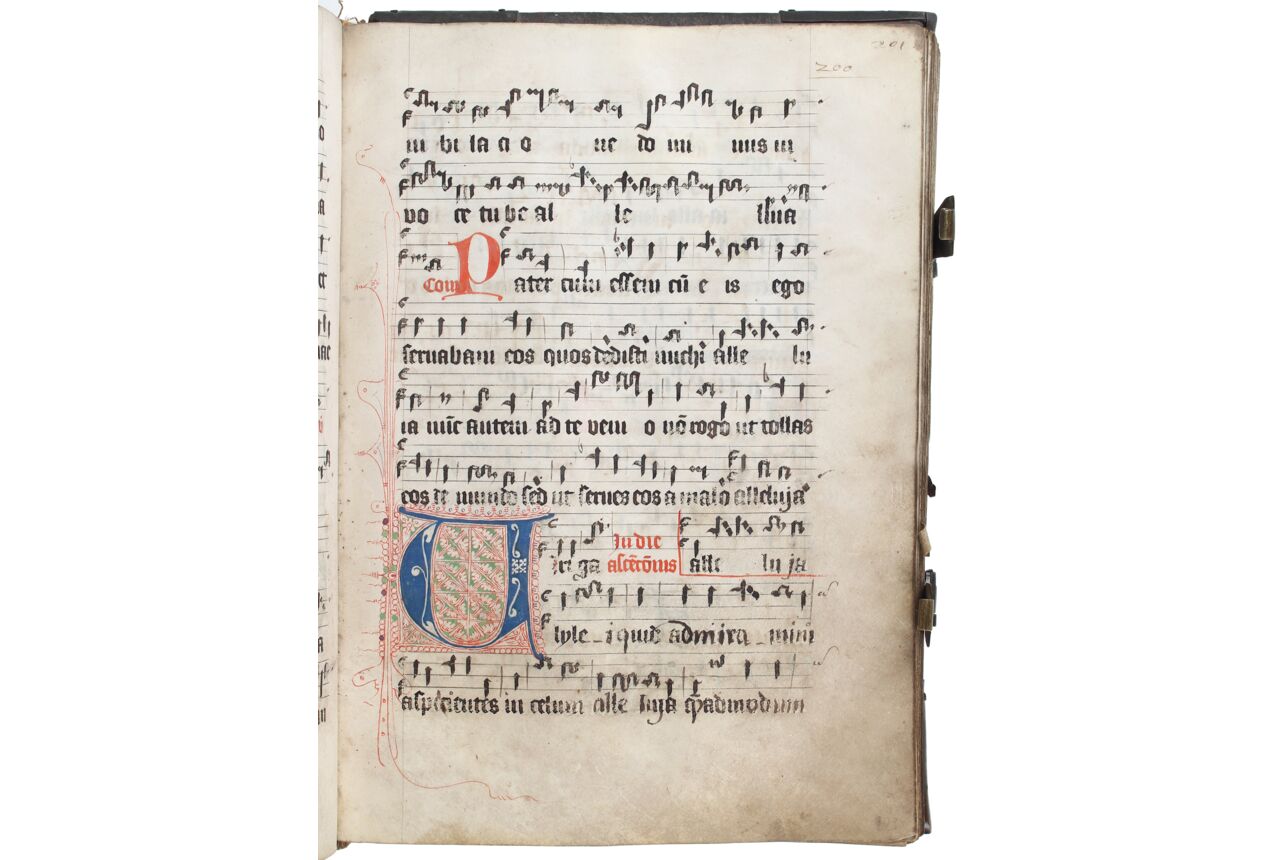 201
200
iu bi la ci o ne do mi nus in
vo ce tu be al le lluia
Com Pater cum essem cū e is ego
seruabam eos quos dedisti michi alle lu
ia nūc autem ad te veni o nō rogo ut tollas
eos de mundo sed ut serues eos a malo alleluja
U iri ga In die ascēcōnis alle lu ja
lyle i quid admira mini
aspicientes in celum alle luja qͫadmodum